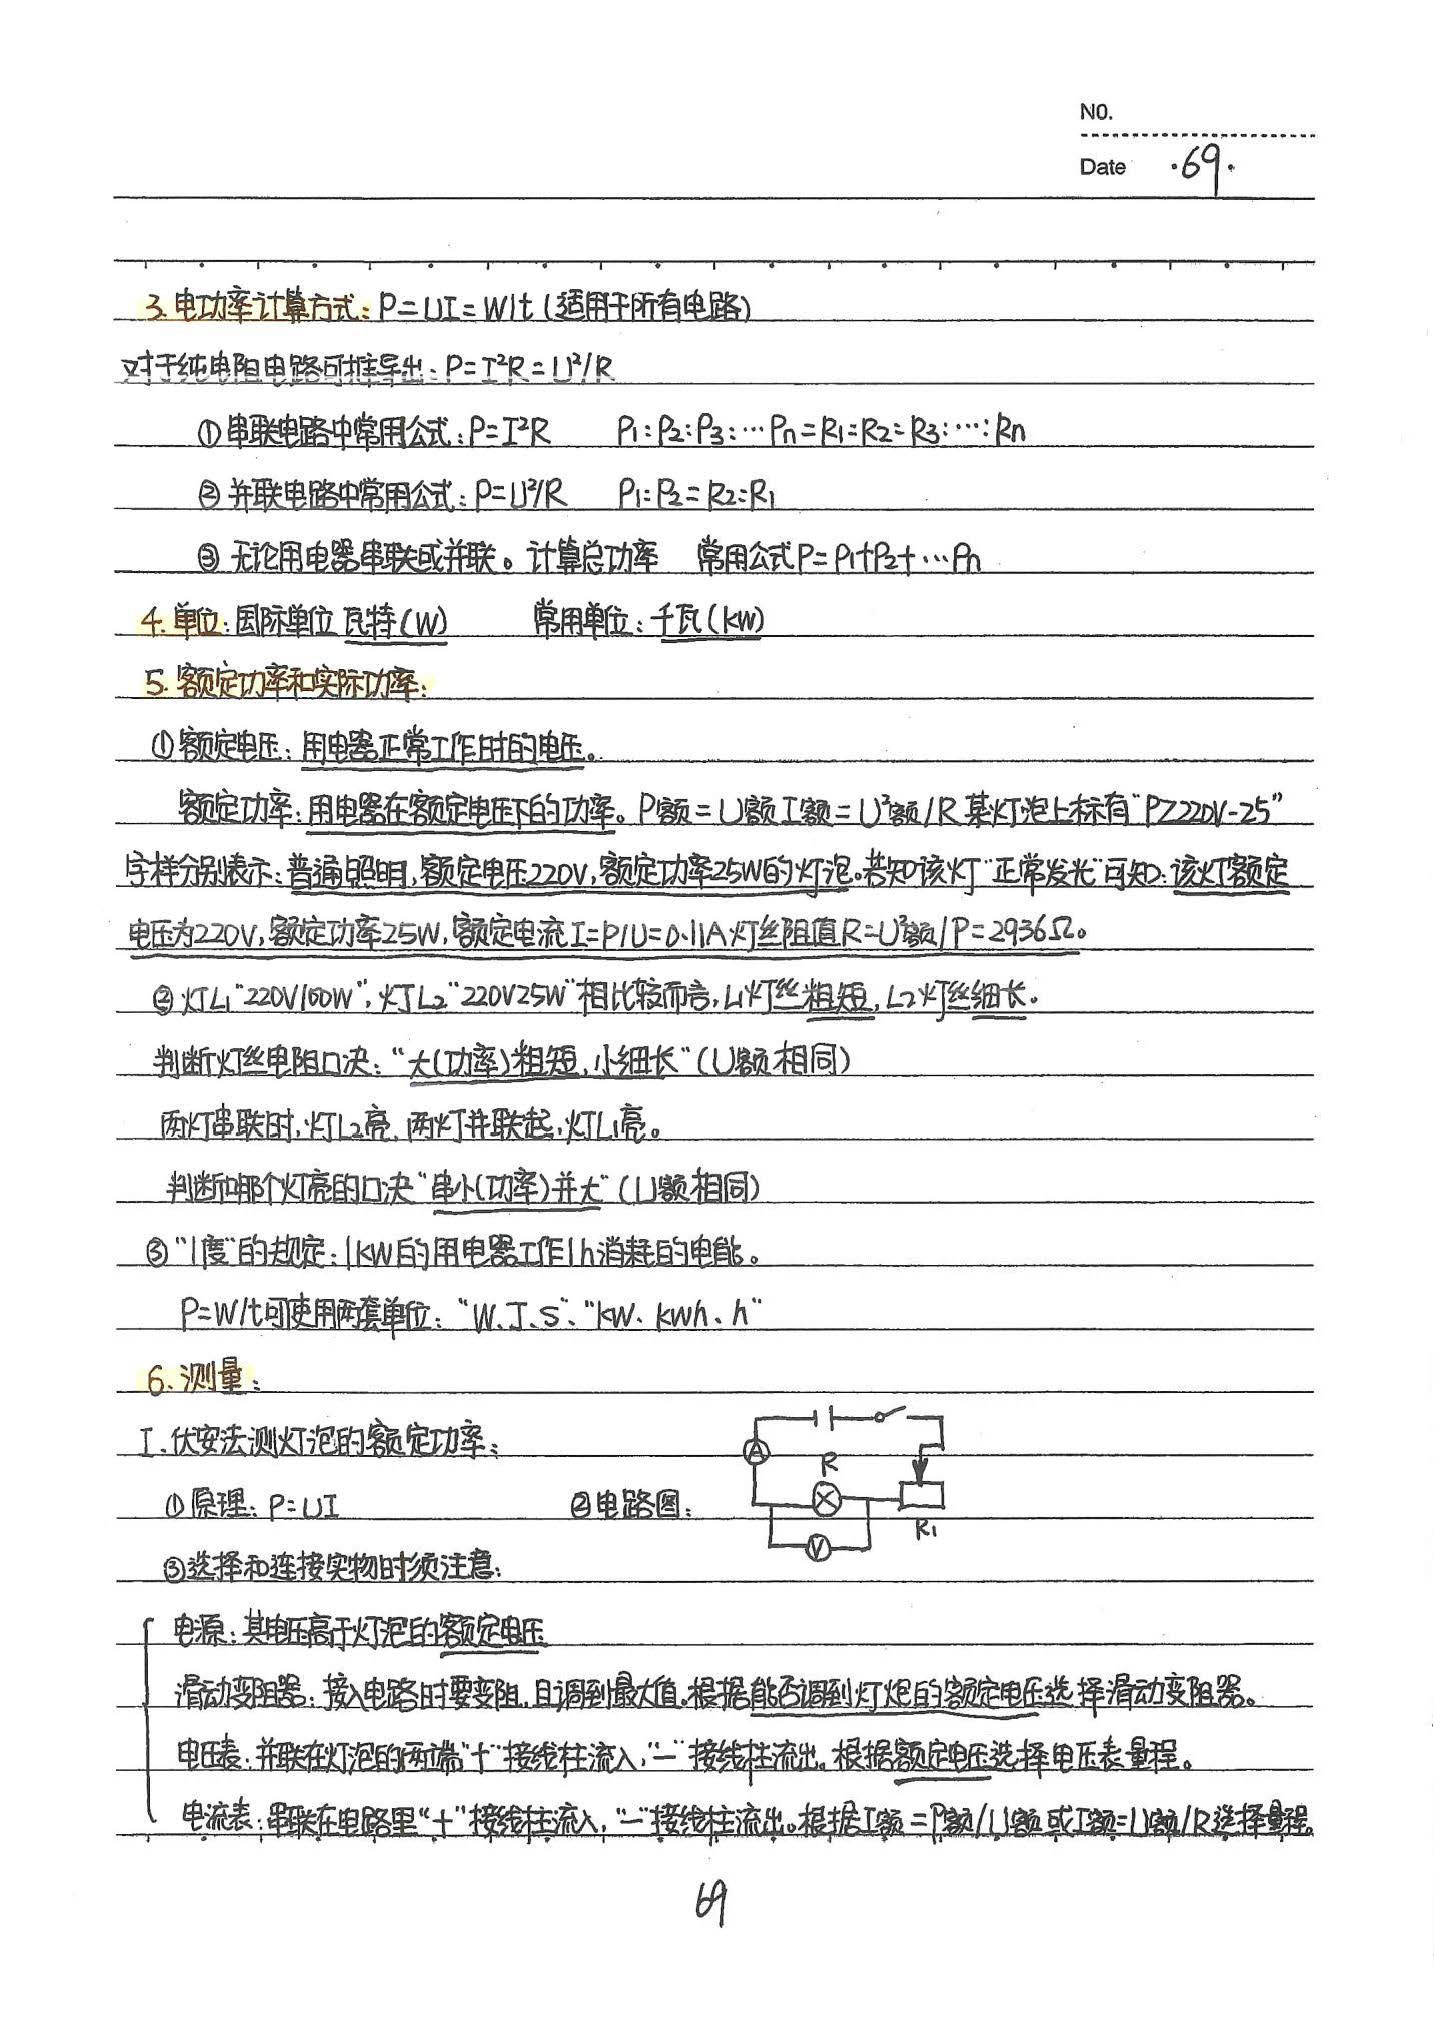 NO.
Date ·69·
3.电功率计算方式:P=UI=W/t(适用于所有电路)
对于纯电阻电路可推导出:P=I²R=U²/R
①串联电路中常用公式:P=I²R P1:P2:P3:…Pn=R1:R2:R3:…:Rn
②并联电路中常用公式:P=U²/R P1:P2=R2:R1
③无论用电器串联或并联。计算总功率 常用公式P=P1+P2+…Pn
4.单位:国际单位 瓦特(W) 常用单位:千瓦(kW)
5.额定功率和实际功率:
①额定电压:用电器正常工作时的电压。
额定功率:用电器在额定电压下的功率。P额=U额I额=U²额/R某灯泡上标有"PZ220V-25"
字样分别表示:普通照明,额定电压220V,额定功率25W的灯泡。若知该灯"正常发光"可知:该灯额定
电压为220V,额定功率25W,额定电流I=P/U=0.11A灯丝阻值R=U²额/P=2936Ω。
②灯L1"220V100W",灯L2"220V25W"相比较而言,L1灯丝粗短,L2灯丝细长。
判断灯丝电阻口决:"大(功率)粗短,小细长"(U额相同)
两灯串联时,灯L2亮,两灯并联起,灯L1亮。
判断哪个灯亮的口决"串小(功率)并大"(U额相同)
③"1度"的规定:1kW的用电器工作1h消耗的电能。
P=W/t可使用两套单位:"W、J、S"、"kW、kwh、h"
6.测量:
I.伏安法测灯泡的额定功率:
①原理:P=UI ②电路图:
A
R
R1
V
③选择和连接实物时须注意:
电源:其电压高于灯泡的额定电压
滑动变阻器:接入电路时要变阻,且调到最大值。根据能否调到灯炮的额定电压选择滑动变阻器。
电压表:并联在灯泡的两端"+"接线柱流入,"-"接线柱流出。根据额定电压选择电压表量程。
电流表:串联在电路里"+"接线柱流入,"-"接线柱流出。根据I额=P额/U额或I额=U额/R选择量程。
69